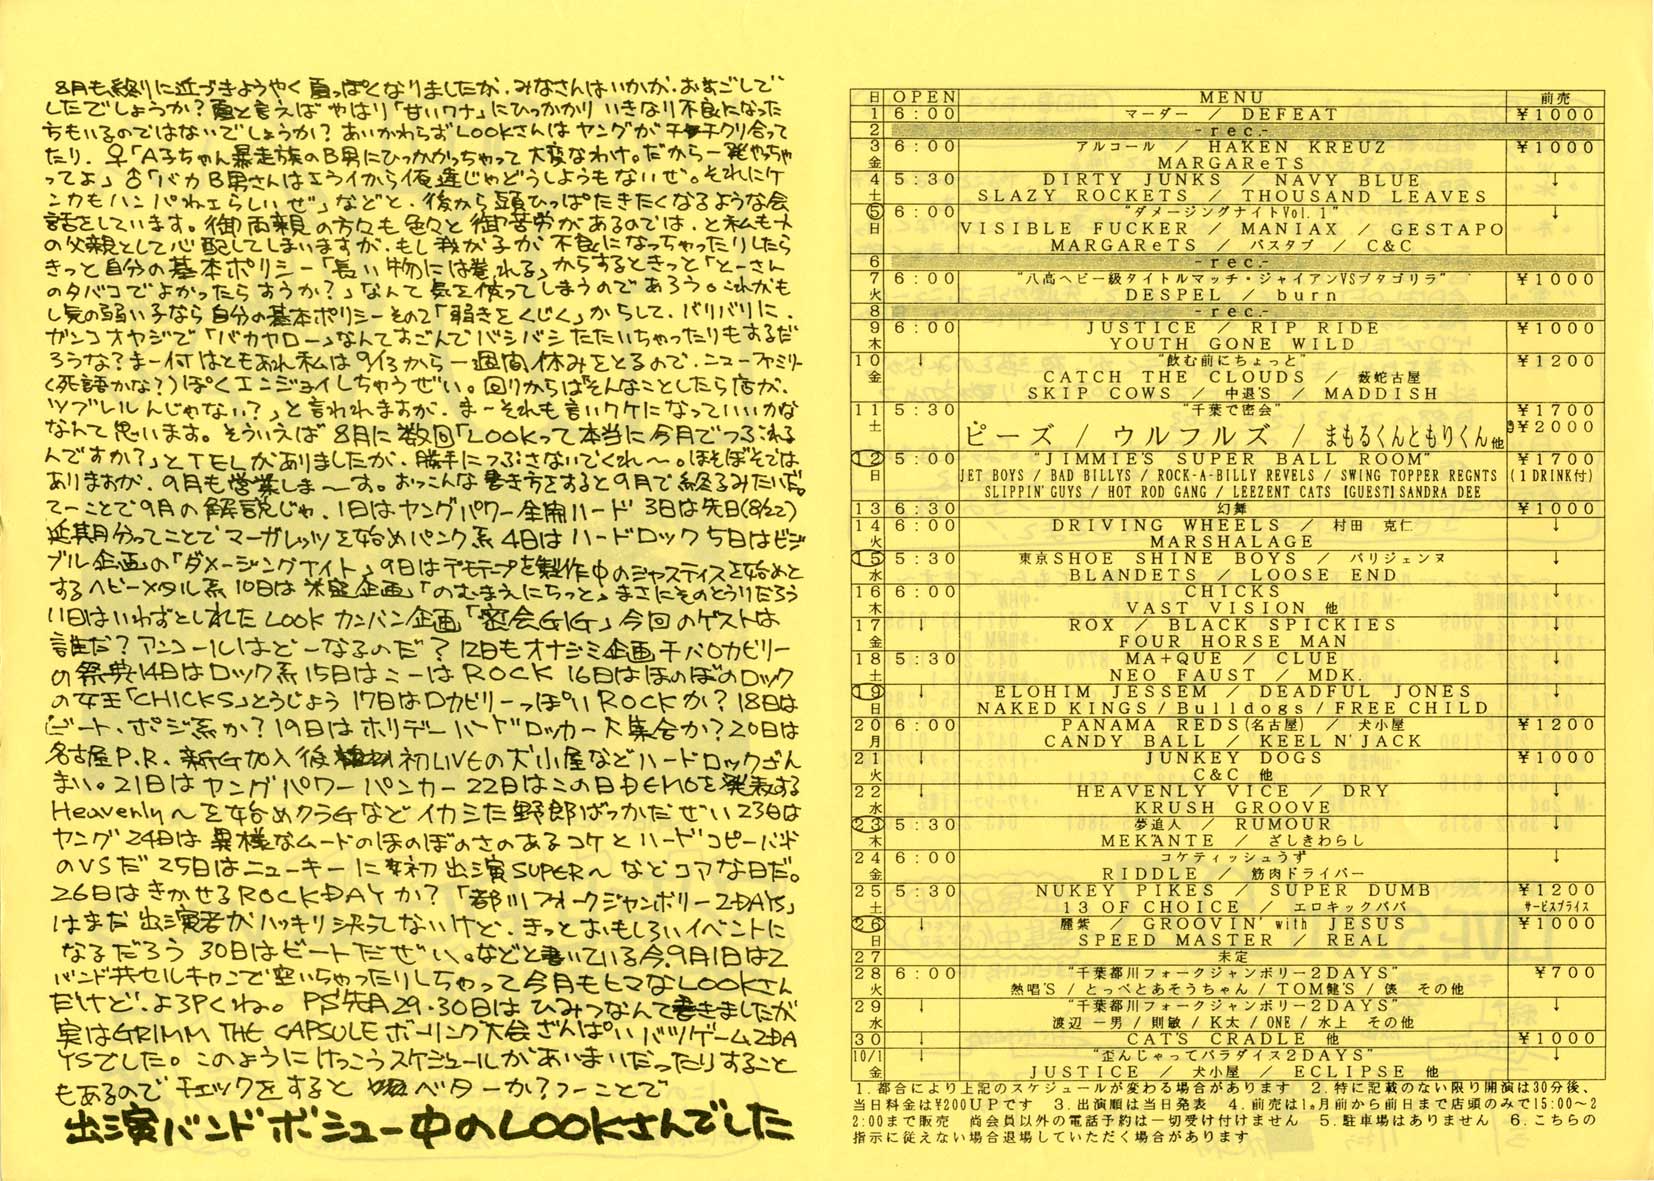 8月も終りに近づきようやく夏っぽくなりましたが、みなさんはいかが、おすごしで
したでしょうか?夏と言えばやはり「甘いワナ」にひっかかりいきなり不良になった
方もいるのではないでしょうか?あいかわらずLOOKさんはヤングがチチクリ合って
たり、♀「A子ちゃん暴走族のB男にひっかかっちゃって大変なわけ。だから一発やっちゃ
ってよ」♂「バカB男さんはエライから俺達じゃどうしようもないぜ。それにケ
ンカもハンパねェらしいぜ」などと、後から頭ひっぱたきたくなるような会
話をしています。御両親の方々も色々と御苦労があるのでは、と私も
の父親として心配してしまいますが、もし我が子が不良になっちゃったりしたら
きっと自分の基本ポリシー「長い物には巻かれる」からするときっと「とーさん
のタバコでよかったらすうか?」なんて気を使ってしまうのであろう。これがも
し気の弱い子なら自分の基本ポリシーその2「弱きをくじく」からして、バリバリに、
ガンコオヤジで「バカヤロー」なんてすごんでバシバシたたいちゃったりもするだ
ろうな?まー何はともあれ私は9/13から一週間休みをとるので、ニューファミリー
(死語かな?)ぽくエンジョイしちゃうぜい。回りからは「そんなことしたら店が、
ツブレルんじゃない?」と言われますが、まーそれも言いワケになっていいかな
なんて思います。そういえば8月に数回「LOOKって本当に今月でつぶれる
んですか?」とTELがありましたが、勝手につぶさないでくれ〜。ほそぼそでは
ありますが、9月も営業しま〜す。おっこんな書き方をすると9月で終るみたいだ。
てーことで9月の解説じゃ、1日はヤングパワー全開ハード 3日は先日(8/22)
延期分ってことでマーガレッツを始めパンク系4日はハードロック5日はビジ
ブル企画の「ダメージングナイト」9日はデモテープを製作中のジャスティスを始めと
するヘビーメタル系10日は 企画「のむまえにちっと」まさにそのとうりだろう
11日はいわずとしれたLOOKカンバン企画「密会GIG」今回のゲストは
誰だ?アンコールはどーなるのだ?12日もオナジミ企画千バロカビリー
の祭典14日はロック系15日はミーはROCK 16日はほのぼのロック
の女王「CHICKS」とうじょう 17日はロカビリーっぽいROCKか?18日は
ビート、ポジ系か?19日はホリデーハードロッカー大集合か?20日は
名古屋P.R、新G加入後初LIVEの犬小屋などハードロックざん
まい。21日はヤングパワーパンカー22日はこの日DEMOを発表する
Heavenly〜を始めクラGなどイカシた野郎ばっかだぜい23日は
ヤング24日は異様なムードのほのぼのさのあるコケとハードコピーバンド
のVSだ 25日はニューキーに初出演SUPER〜などコアな日だ。
26日はきかせるROCKDAYか?「都川フォークジャンボリー2DAYS」
はまだ出演者がハッキリ決ってしないけど、きっとおもしろいイベントに
なるだろう 30日はビートだぜい。などと書いている今、9月1日は2
バンド共セルキャンで空いちゃったりしちゃって今月もヒマなLOOKさん
だけど、よろPくね。PS先月29・30日はひみつなんて書きましたが
実はGRIMM THE CAPSULEボーリング大会ざんぱいバツゲーム2DA
YSでした。このようにけっこうスケジュールがあいまいだったりすること
もあるのでチェックをすると ベターか?つーことで
出演バンドボシュー中のLOOKさんでした
日 OPEN MENU 前売
1 6:00 マーダー / DEFEAT ¥1000
2 -rec.-
3 6:00 アルコール / HAKEN KREUZ ¥1000
金 MARGAReTS
4 5:30 DIRTY JUNKS / NAVY BLUE ↓
土 SLAZY ROCKETS / THOUSAND LEAVES
5 6:00 "ダメージングナイトVol.1" ↓
日 VISIBLE FUCKER / MANIAX / GESTAPO
MARGAReTS / バスタブ / C&C
6 -rec.-
7 6:00 "八高ヘビー級タイトルマッチ・ジャイアンVSブタゴリラ" ¥1000
火 DESPEL / burn
8 -rec.-
9 6:00 JUSTICE / RIP RIDE ¥1000
木 YOUTH GONE WILD
10 ↓ "飲む前にちょっと" ¥1200
金 CATCH THE CLOUDS / 薮蛇古屋
SKIP COWS / 中退'S / MADDISH
11 5:30 "千葉で密会" ¥1700
土 ピーズ / ウルフルズ / まもるくんともりくん他 ¥2000
12 5:00 "JIMMIE'S SUPER BALL ROOM" ¥1700
日 JET BOYS / BAD BILLYS / ROCK-A-BILLY REVELS / SWING TOPPER REGNTS (1DRINK付)
SLIPPIN' GUYS / HOT ROD GANG / LEEZENT CATS [GUEST]SANDRA DEE
13 6:30 幻舞 ¥1000
14 6:00 DRIVING WHEELS / 村田 克仁 ↓
火 MARSHALAGE
15 5:30 東京SHOE SHINE BOYS / パリジェンヌ ↓
水 BLANDETS / LOOSE END
16 6:00 CHICKS ↓
木 VAST VISION 他
17 ↓ ROX / BLACK SPICKIES ↓
金 FOUR HORSE MAN
18 5:30 MA+QUE / CLUE ↓
土 NEO FAUST / MDK.
19 ↓ ELOHIM JESSEM / DEADFUL JONES ↓
日 NAKED KINGS / Bulldogs / FREE CHILD
20 6:00 PANAMA REDS(名古屋) / 犬小屋 ¥1200
月 CANDY BALL / KEEL N'JACK
21 ↓ JUNKEY DOGS ¥1000
火 C&C 他
22 ↓ HEAVENLY VICE / DRY ↓
水 KRUSH GROOVE
23 5:30 夢追人 / RUMOUR ↓
木 MEKANTE / ざしきわらし
24 6:00 コケティッシュうず ↓
金 RIDDLE / 筋肉ドライバー
25 5:30 NUKEY PIKES / SUPER DUMB ¥1200
土 13 OF CHOICE / エロキックババ サービスプライス
26 ↓ 麗紫 / GROOVIN' with JESUS ¥1000
日 SPEED MASTER / REAL
27 未定
28 6:00 "千葉都川フォークジャンボリー2DAYS" ¥700
火 熱唱'S / とっぺとあそうちゃん / TOM健'S / 俵 その他
29 ↓ "千葉都川フォークジャンボリー2DAYS" ↓
水 渡辺 一男 / 則敏 / K太 / ONE / 水上 その他
30 ↓ CAT'S CRADLE 他 ¥1000
10/1 ↓ "歪んじゃってパラダイス2DAYS" ↓
JUSTICE / 犬小屋 / ECLIPSE 他
1.都合により上記のスケジュールが変わる場合があります 2.特に記載のない限り開演は30分後、
当日料金は¥200UPです 3.出演順は当日発表 4.前売は1ヵ月前から前日まで店頭のみで15:00〜2
2:00まで販売 尚会員以外の電話予約は一切受け付けません 5.駐車場はありません 6.こちらの
指示に従えない場合退場していただく場合があります